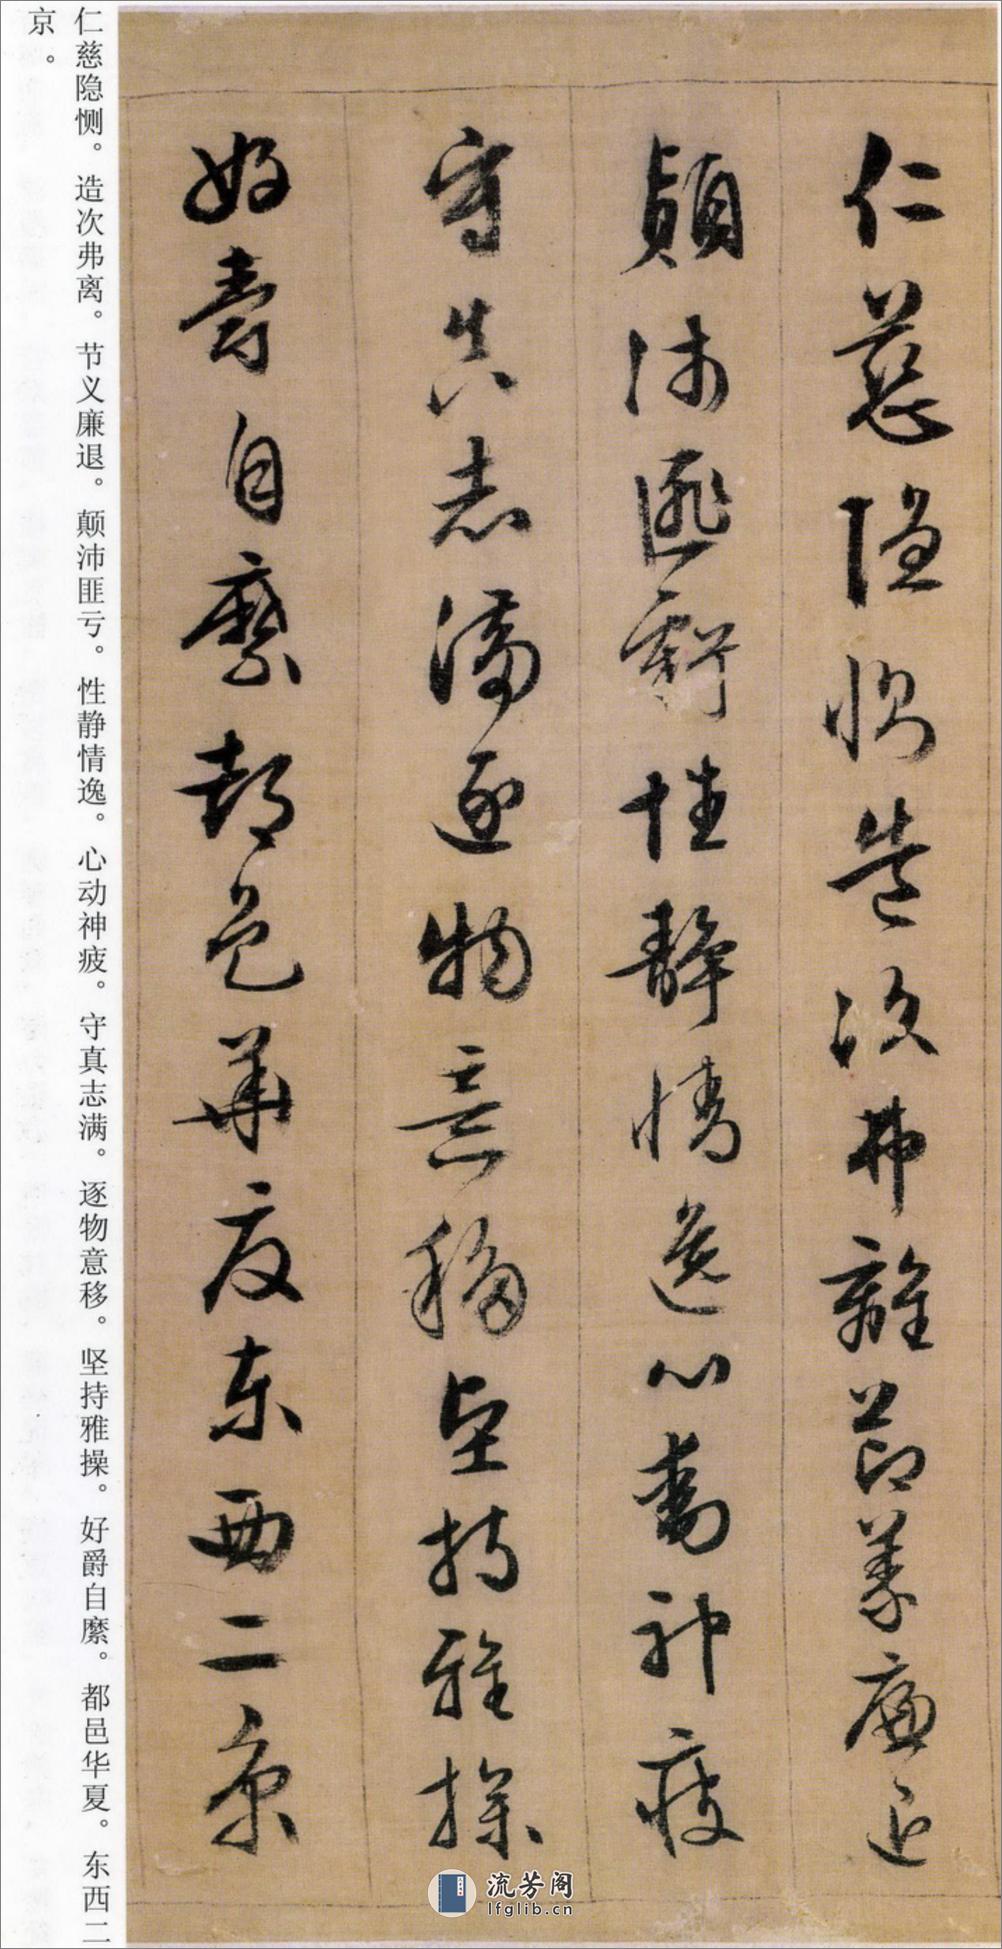 仁慈隱惻造次弗離節義廉退
顛沛匪虧性靜情逸心動神疲
守真志滿逐物意移堅持雅操
好爵自縻都邑華夏東西二京
仁慈隐恻。造次弗离。节义廉退。颠沛匪亏。性静情逸。心动神疲。守真志满。逐物意移。坚持雅操。好爵自縻。都邑华夏。东西二
京。
流芳阁
lfglib.cn